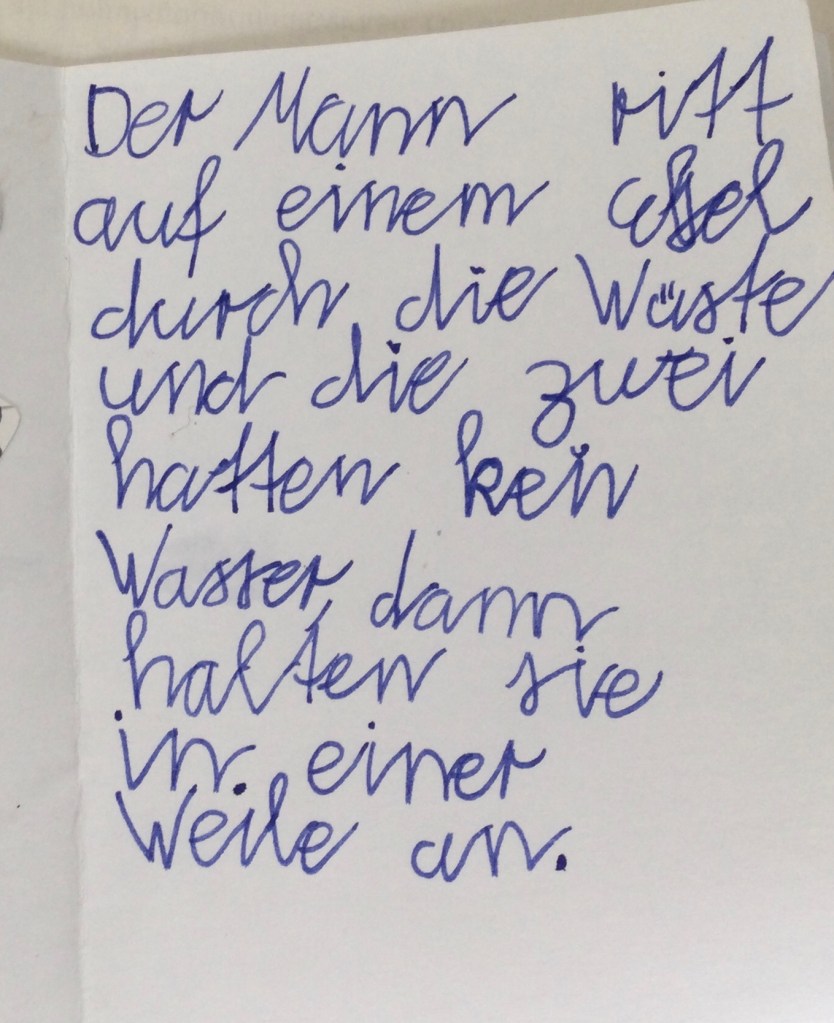 Der Mann ritt
auf einem Esel
durch die Wüste
und die zwei
hatten kein
Wasser, dann
halten sie
in einer
Weile an.